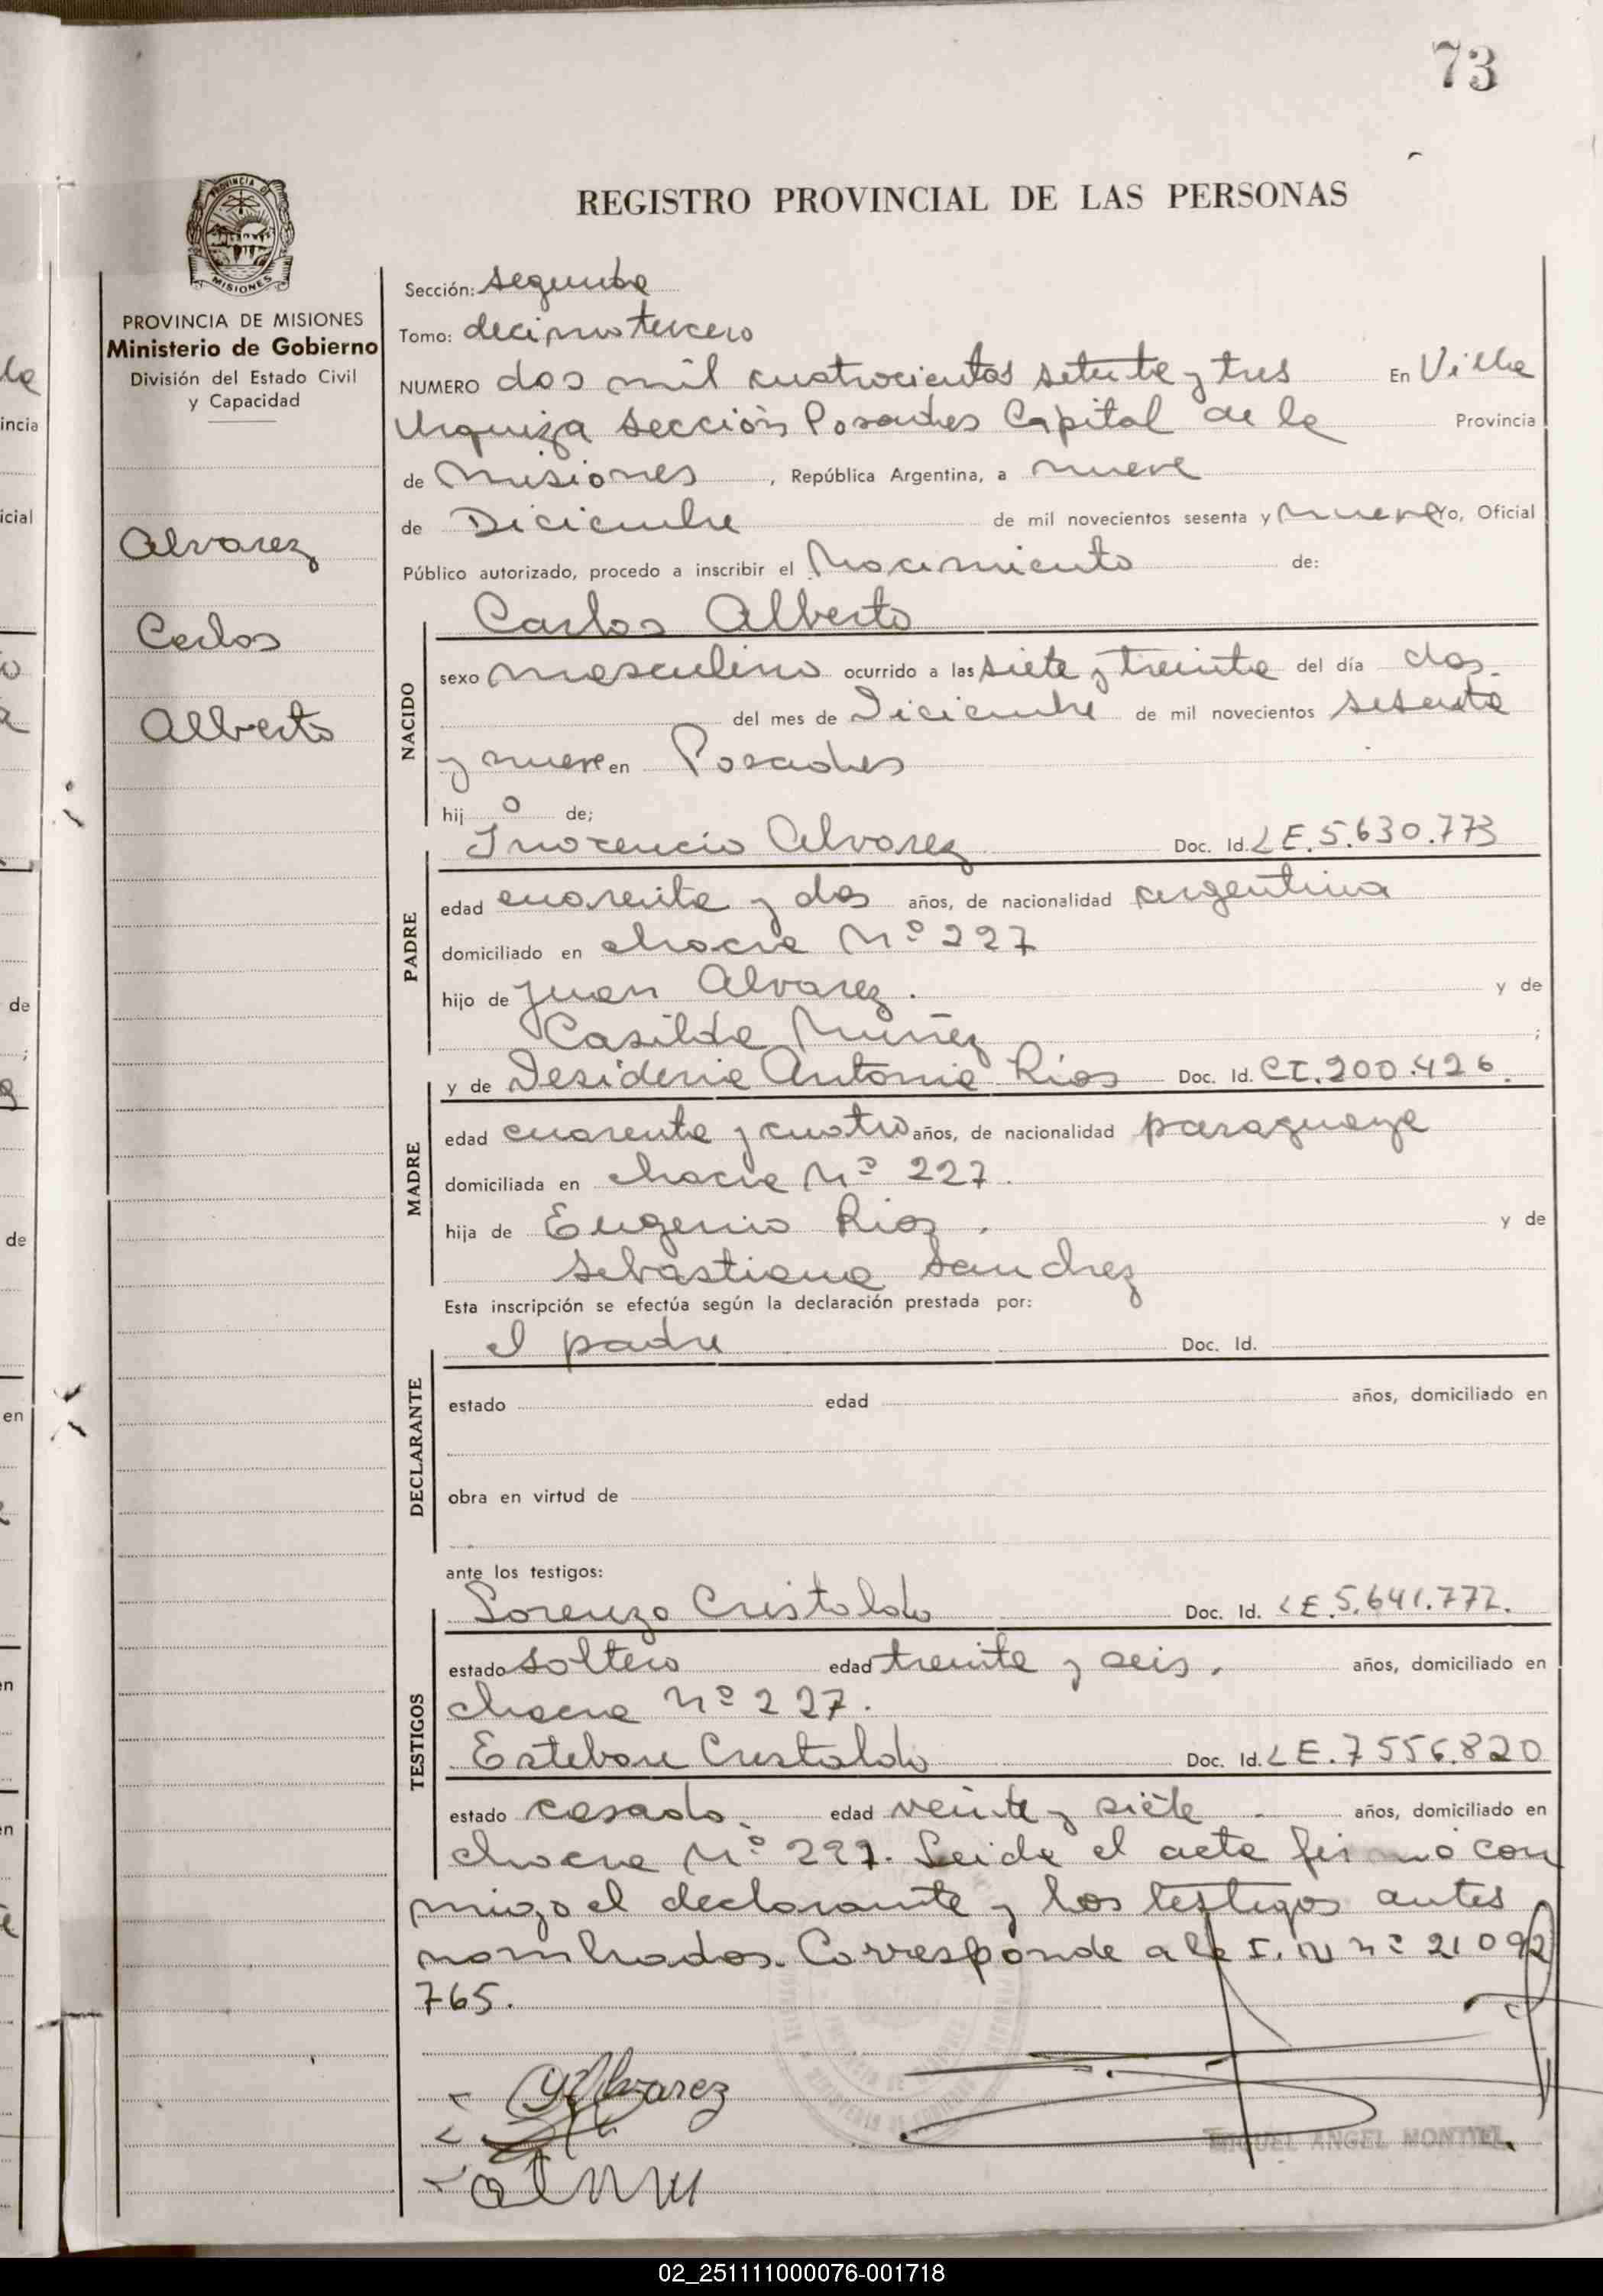 73
REGISTRO PROVINCIAL DE LAS PERSONAS
PROVINCIA DE MISIONES
Ministerio de Gobierno
División del Estado Civil
y Capacidad
Alvarez
Carlos
Alberto
Sección: segunda
Tomo: decimo tercero
NUMERO dos mil cuatrocientos setenta y tres En Villa
Urquiza sección Posadas Capital de la Provincia
de Misiones, República Argentina, a nueve
de Diciembre de mil novecientos sesenta y nueve yo, Oficial
Público autorizado, procedo a inscribir el Nacimiento de:
Carlos Alberto
NACIDO
sexo masculino ocurrido a las siete y treinta del día dos
del mes de Diciembre de mil novecientos sesenta
y nueve en Posadas
hijo de;
Inocencio Alvarez Doc. Id. LE. 5.630.773
PADRE
edad cuarenta y dos años, de nacionalidad argentina
domiciliado en chacra Nº 227
hijo de Juan Alvarez. y de
Casilda Nuñez ;
y de Desideria Antonia Rios Doc. Id. CI. 200.426.
MADRE
edad cuarenta y cuatro años, de nacionalidad paraguaya
domiciliada en chacra Nº 227.
hija de Eugenio Rios. y de
Sebastiana Sanchez
Esta inscripción se efectúa según la declaración prestada por:
el padre Doc. Id.
DECLARANTE
estado edad años, domiciliado en
obra en virtud de
ante los testigos:
Lorenzo Cristaldo Doc. Id. LE. 5.641.772.
TESTIGOS
estado soltero edad treinta y seis. años, domiciliado en
chacra Nº 227.
Esteban Cristaldo Doc. Id. LE. 7556.820
estado casado. edad veinte y siete años, domiciliado en
chacra Nº 227. Leida el acta firmó con
migo el declarante y los testigos antes
nombrados. Corresponde a la I. N nº 21 092
765.
Alvarez
MIGUEL ANGEL MONTIEL
02_251111000076-001718